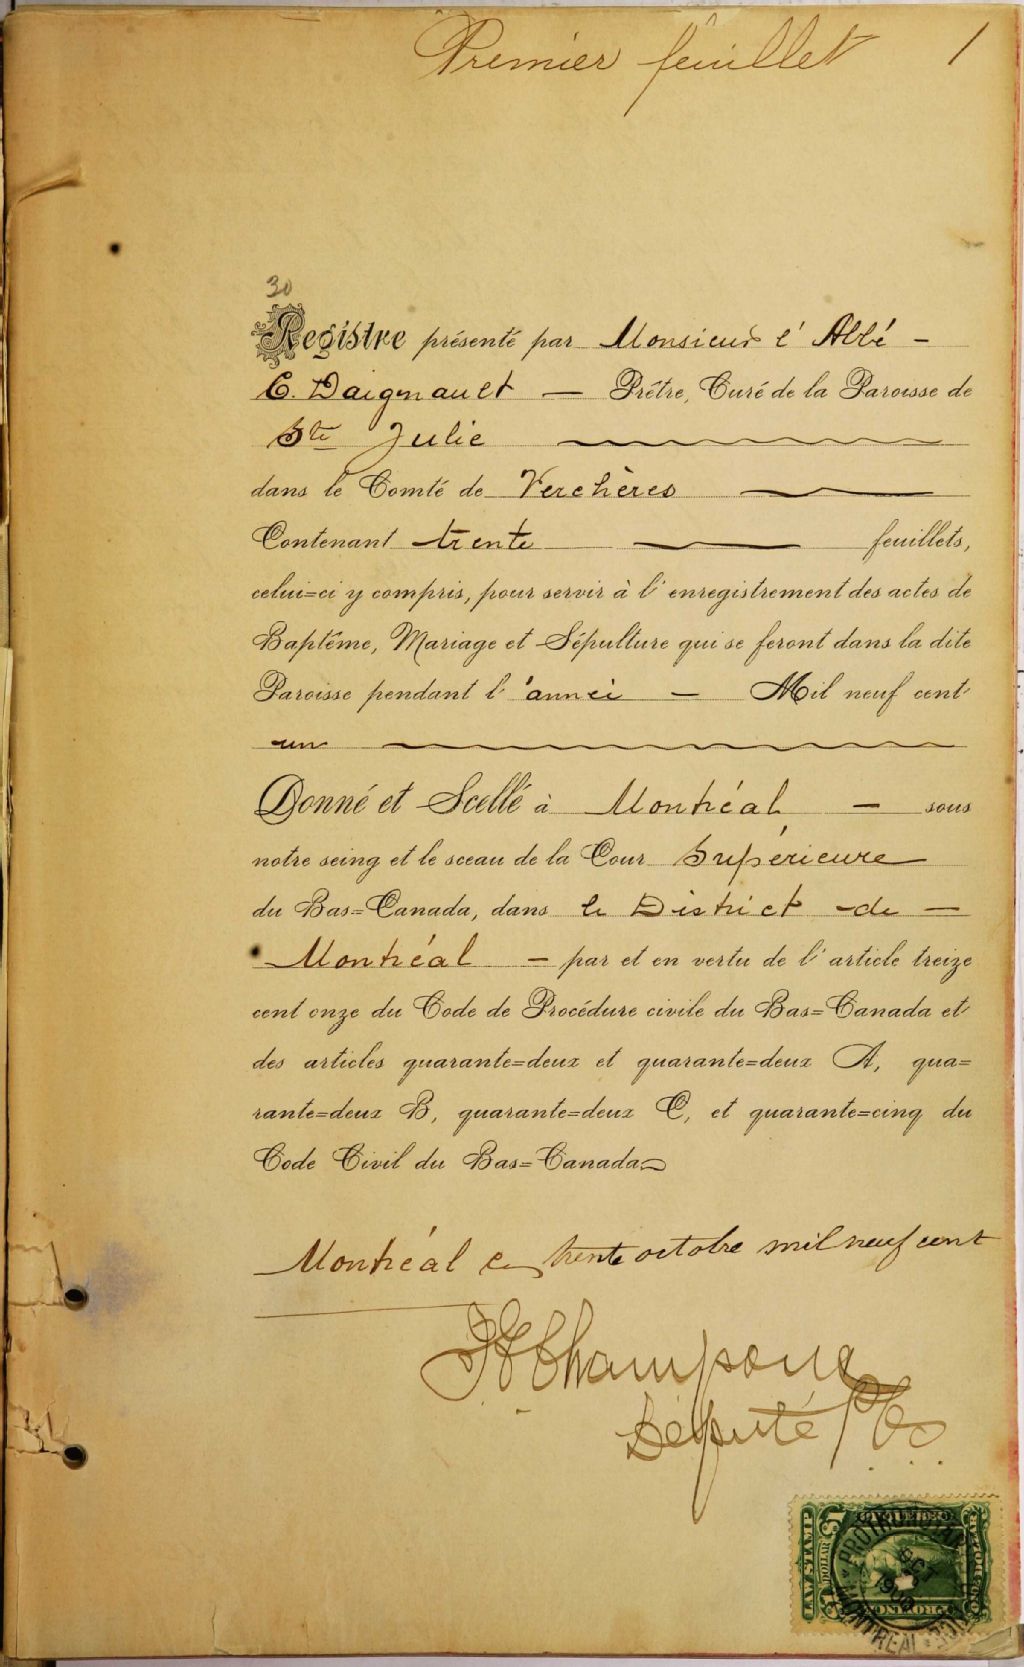 Premier feuillet 1
30
Registre présenté par Monsieur l'Abbé –
C. Daignault — Prêtre, Curé de la Paroisse de
Ste Julie
dans le Comté de Verchères
Contenant trente feuillets,
celui=ci y compris, pour servir à l'enregistrement des actes de
Baptême, Mariage et Sépulture qui se feront dans la dite
Paroisse pendant l'année — Mil neuf cent
un
Donné et Scellé à Montréal — sous
notre seing et le sceau de la Cour Supérieure
du Bas=Canada, dans le District de —
Montréal — par et en vertu de l'article treize
cent onze du Code de Procédure civile du Bas=Canada et
des articles quarante=deux et quarante=deux A, qua=
rante=deux B, quarante=deux C, et quarante=cinq du
Code Civil du Bas=Canada.
Montréal ce trente octobre mil neuf cent
Champoux
Député P.C.S.
LAW STAMP
QUEBEC
DOLLAR
PROTHONOTAR
OCT
1900
MONTREAL